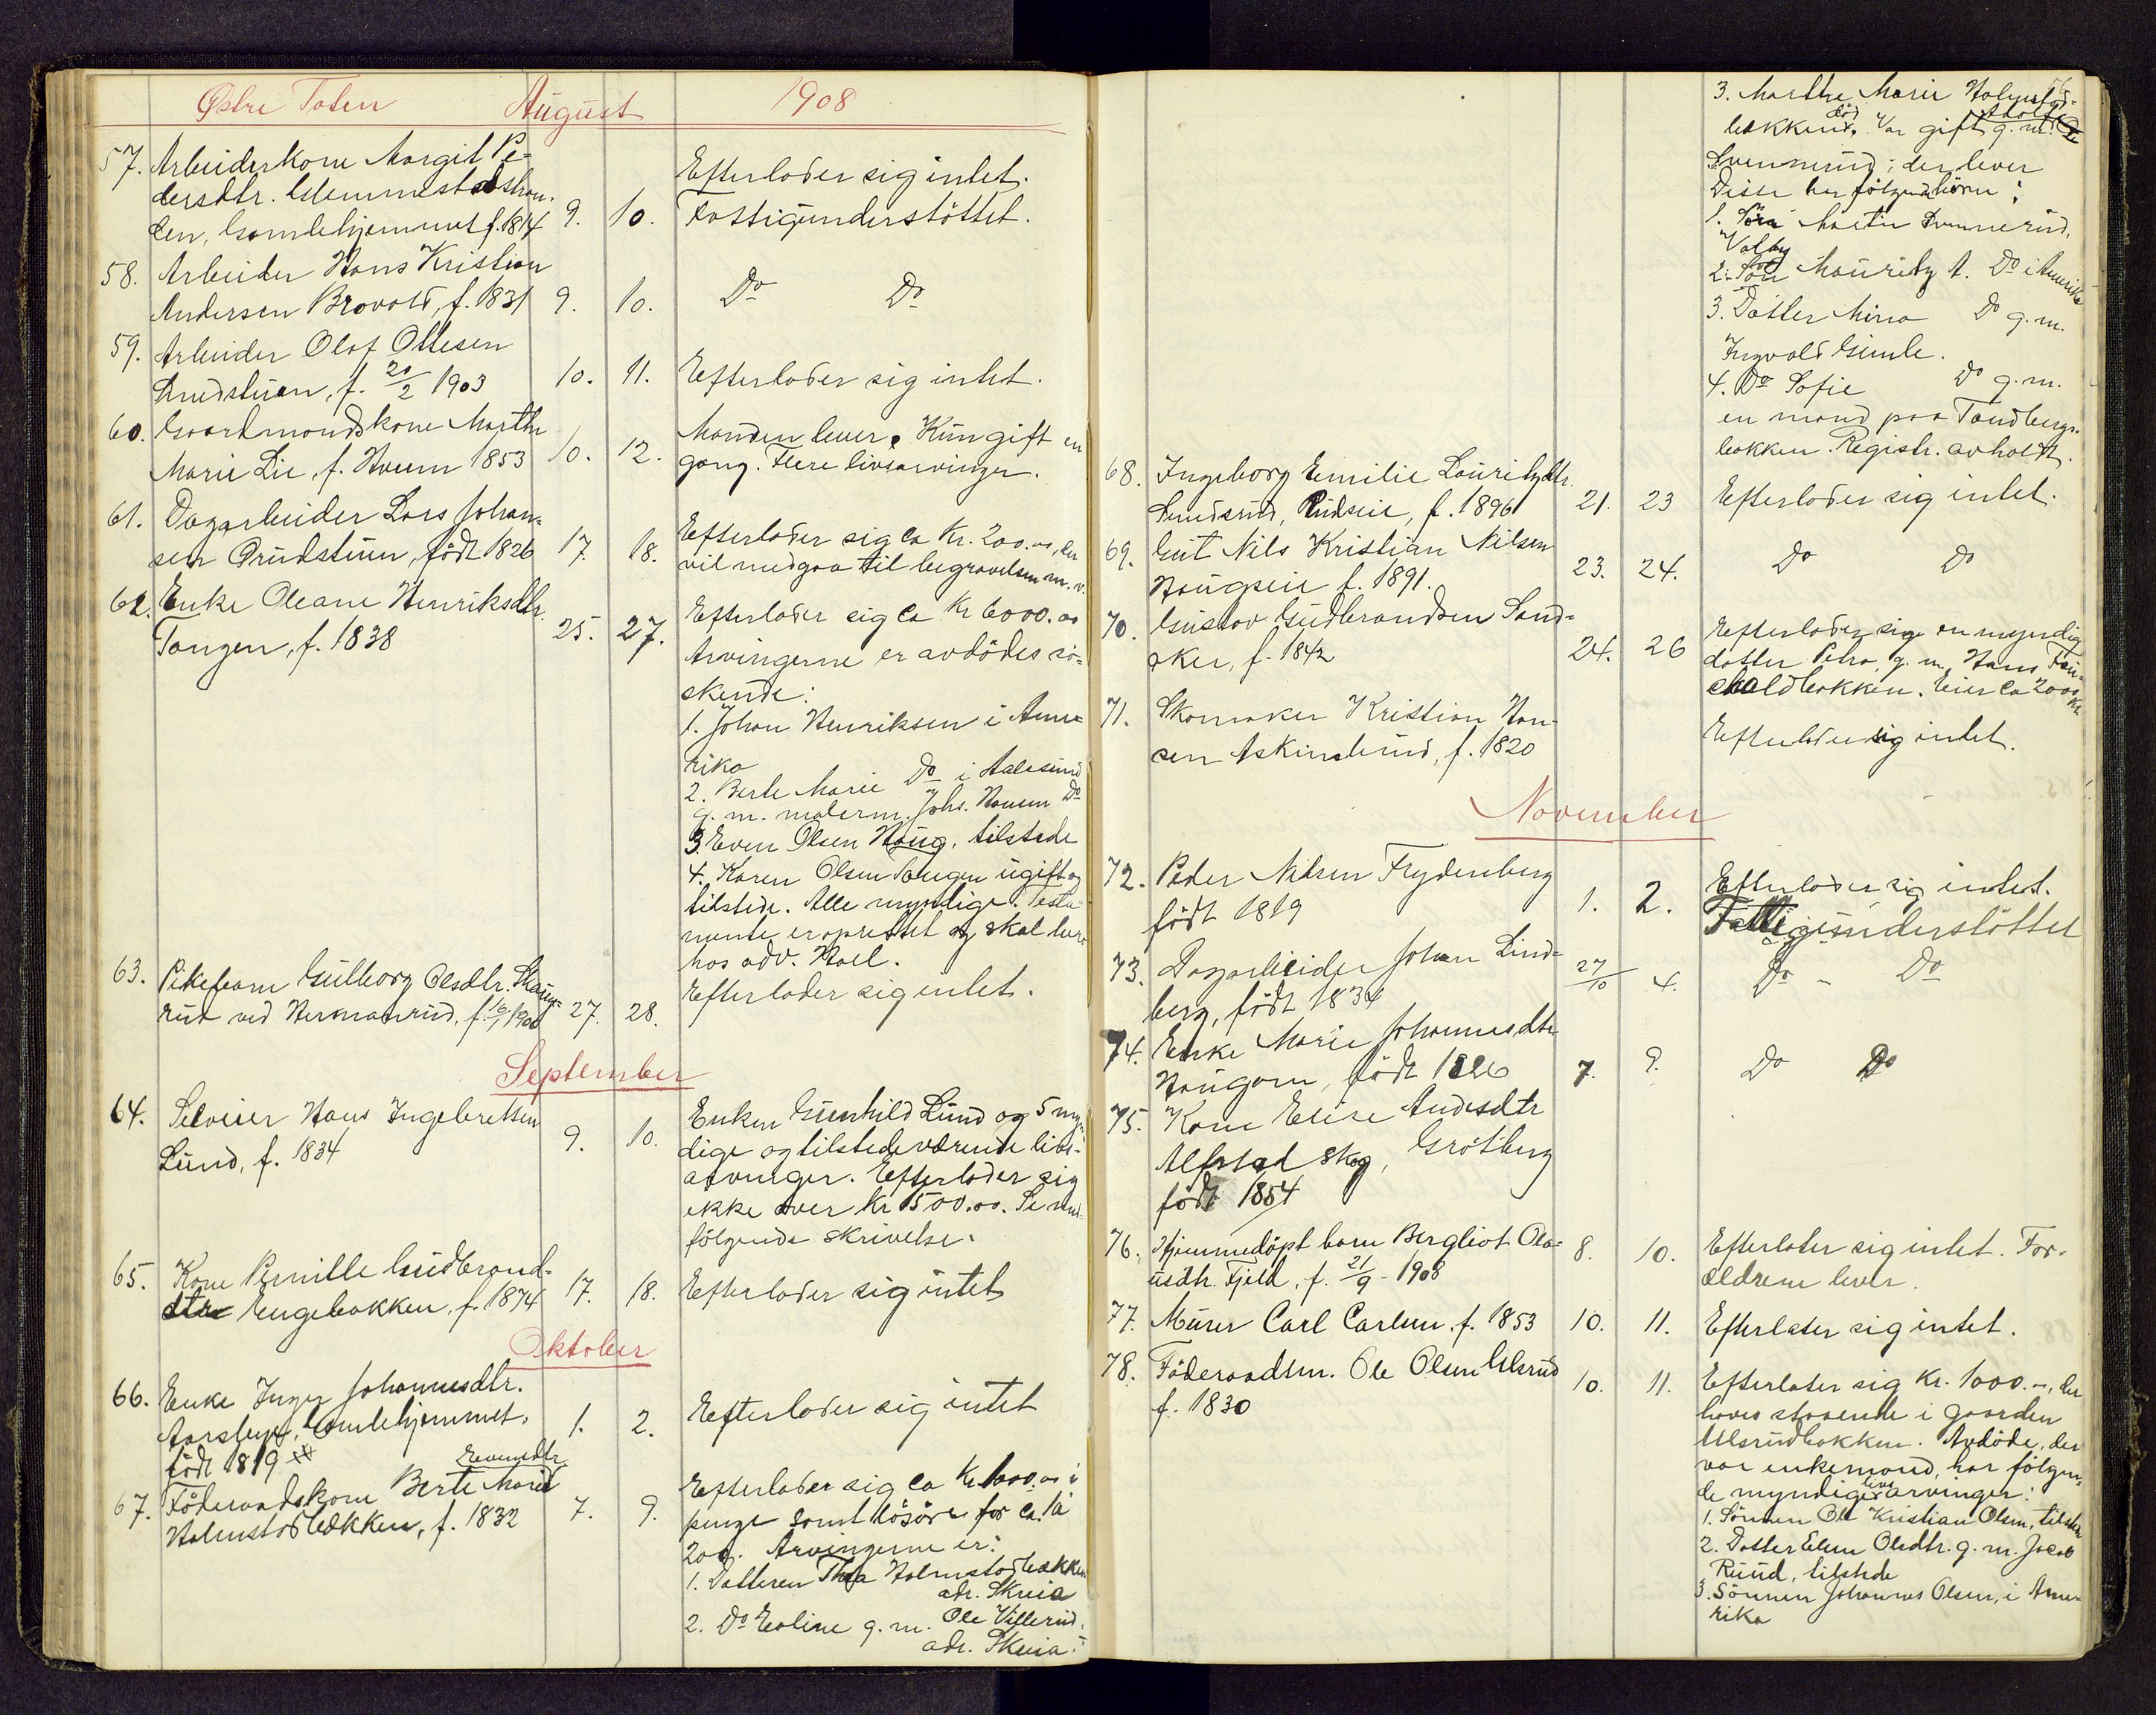 Østre Toten August 1908
57. Arbeiderkone Margit Pe-
dersdtr. Glemmestadstran-
den, Gamlehjemmet f. 1814 9. 10. Efterlader sig intet.
Fattigunderstöttet.
58. Arbeider Hans Kristian
Andersen Brovold, f. 1831 9. 10. Do Do
59. Arbeider Olaf Ottesen
f. 20/2 1903 10. 11. Efterlader sig intet.
60. Gaardmandskone Marthe
Marie Lie, f. Hveem 1853 10. 12. Manden lever. Kun gift en
gang. Flere livsarvinger.
61. Dagarbeider Lars Johan-
sen Grudstuen, född 1826 17. 18. Efterlader sig ca Kr. 200.00, der
vil medgaa til begravelsen m.v.
62. Enke Oleane Henriksdtr.
Tangen, f. 1838 25. 27. Efterlader sig ca Kr 6000.00
Arvingerne er avdödes sö-
skende:
1. Johan Henriksen i Ame-
rika
2. Berte Marie Do i Aalesund
g. m. malerm. Johs. Hansen Do
3. Even Olsen Haug, tilstede
4. Karen Olsen Tangen ugift og
tilstede. Alle myndige. Testa-
mente er oprettet og skal bero
hos adv. Hoel.
63. Pikebarn Gulborg Olsdtr. Skaug-
rud ved Hermanrud, f. 16/1 1900 27. 28. Efterlader sig intet.
September
64. Selveier Hans Ingebretsen
Lund, f. 1834 9. 10. Enken Gunhild Lund og 5 myn-
dige og tilstedeværende livs-
arvinger. Efterlader sig
ikke over kr 1500.00. Se med-
fölgende skrivelse.
65. Kone Pernille Gudbrand-
dtr Engebakken, f. 1874 17. 18. Efterlader sig intet
Oktober
66. Enke Inger Johannesdtr.
Gamlehjemmet,
född 1819 1. 2. Efterlader sig intet
67. Föderaadskone Berte Marie Evensdtr
Holmstadbakken, f. 1832 7. 9. Efterlader sig ca Kr. 1000.00 i
penge samt lösöre for ca. 1 à
200. Arvingerne er:
1. Datteren Thea Holmstadbakken
adr. Skreia
2. Do Eoline g. m. Ole Villerud,
adr. Skreia.
3. Marthe Marie Holmstad-
bakken, död. Var gift g. m.
Svennerud; der lever
Disse har fölgende börn:
1. Sön Martin Svennerud,
Valby
2. Sön Mauritz A. Do i Amerika
3. Datter Mina Do g. m.
Ingvald Gimle.
4. Do Sofie Do g. m.
en mand paa Tandbergs-
bakken. Registr. avholdt.
68. Ingeborg Emilie Lauritzdtr.
f. 1896 21. 23 Efterlader sig intet.
69. Gut Nils Kristian Nilsen
Haugseie f. 1891. 23. 24. Do Do
70. Gustav Gudbrandsen Sand-
aker, f. 1842 24. 26 Efterlader sig en myndig
datter Petra g. m. Hans Fau-
chaldbakken. Eier ca 2000 kr.
71. Skomaker Kristian Han-
sen Askimlund, f. 1820 Efterlader sig intet.
November
72. Peder Nilsen Frydenberg
födt 1819 1. 2. Efterlader sig intet.
Fattigunderstöttet
73. Dagarbeider Johan Lind-
berg, födt 1834 27/10 4. Do - Do
74. Enke Marie Johannesdtr
Haugom, födt 1826 7. 9. Do Do
75. Kone Elise Andersdtr
Alfstad skog, Grötberg
födt 1854
76. Hjemmedöpt barn Bergliot Ola-
usdtr. Fjeld, f. 21/9 - 1908 8. 10. Efterlater sig intet. For-
ældrene lever.
77. Murer Carl Carlsen f. 1853 10. 11. Efterlater sig intet.
78. Föderaadsm. Ole Olsen Ulsrud
f. 1830 10. 11. Efterlater sig Kr. 1000.-, der
haves staaende i gaarden
Ulsrudbakken. Avdöde, der
var enkemand, har fölgen-
de myndige livsarvinger:
1. Sönnen Ole Kristian Olsen, tilstede
2. Datter Elene Olsdtr. g. m. Jacob
Ruud, tilstede
3. Sönnen Johannes Olsen, i Ame-
rika